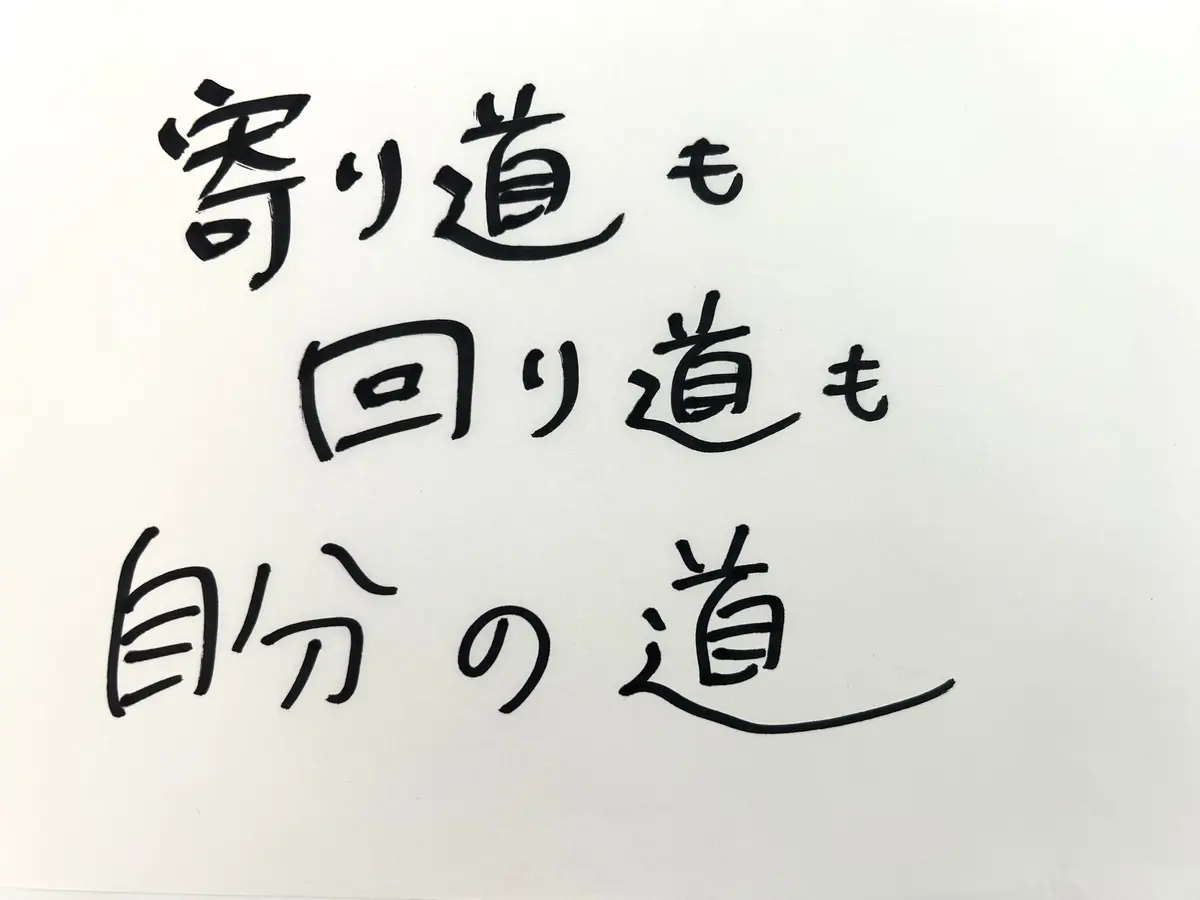 寄り道も
回り道も
自分の道